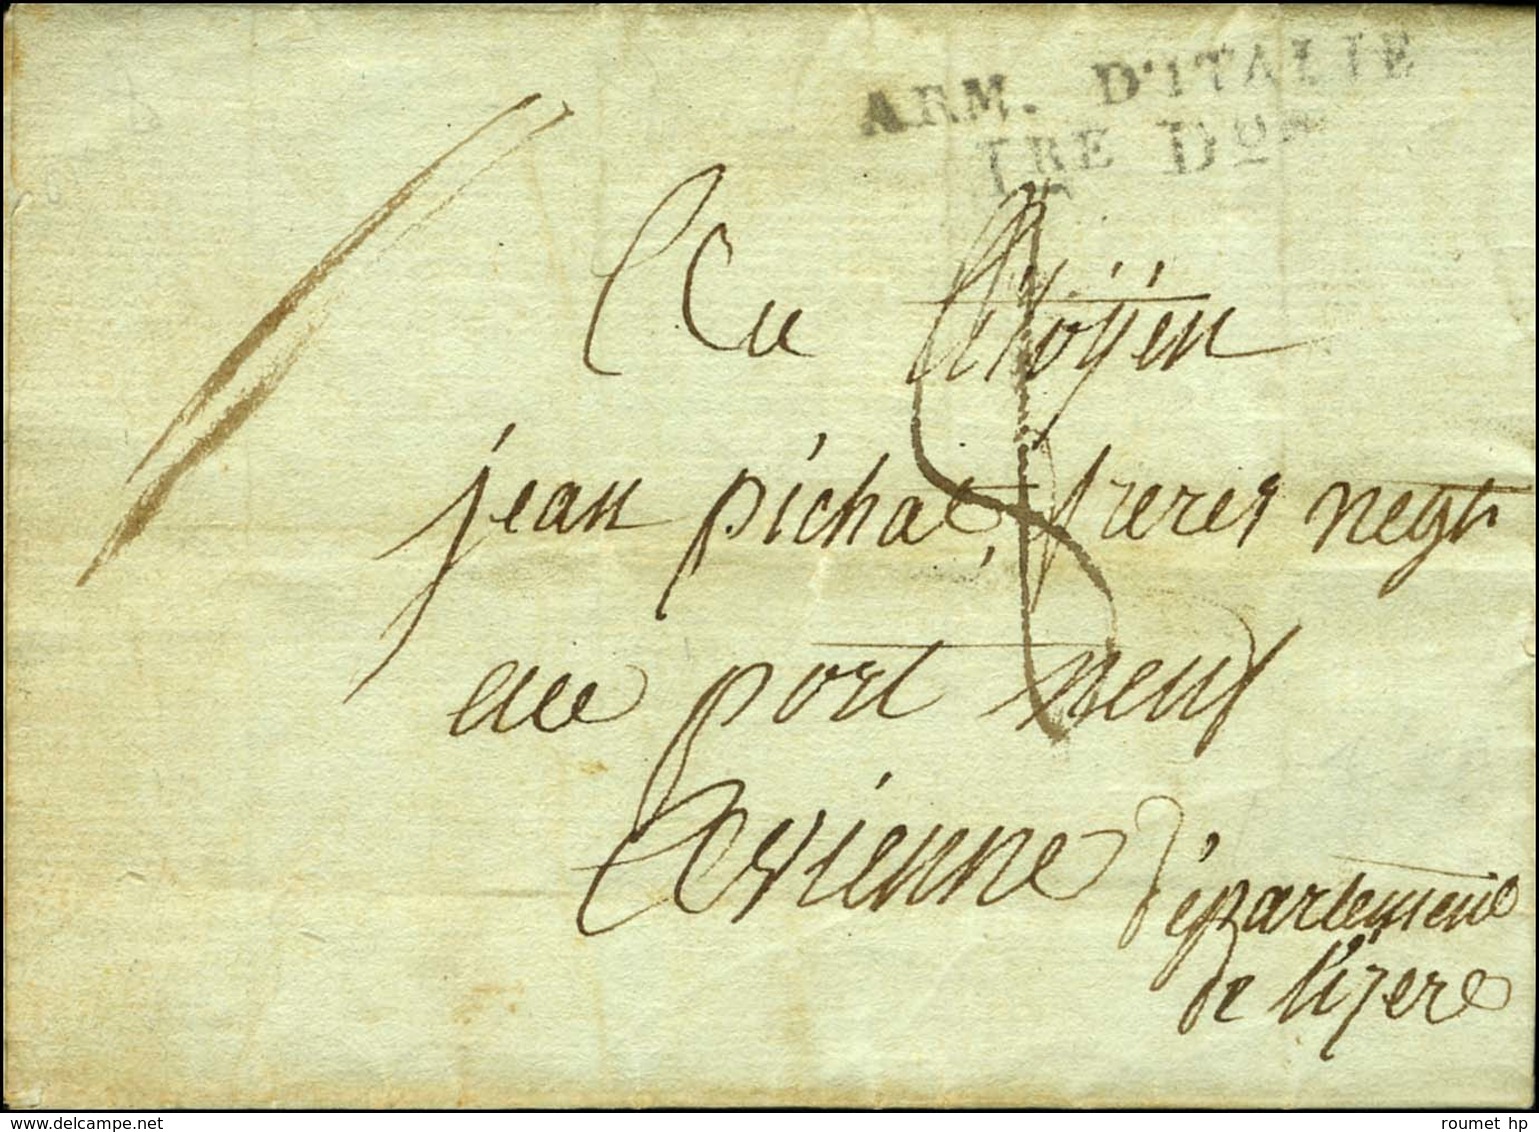 ARM. D'ITALIE
IRE Don
Au Citoÿen
jean pichat, freres negt
au port neuf
A vienne
Département
de l'izere
roumet hp